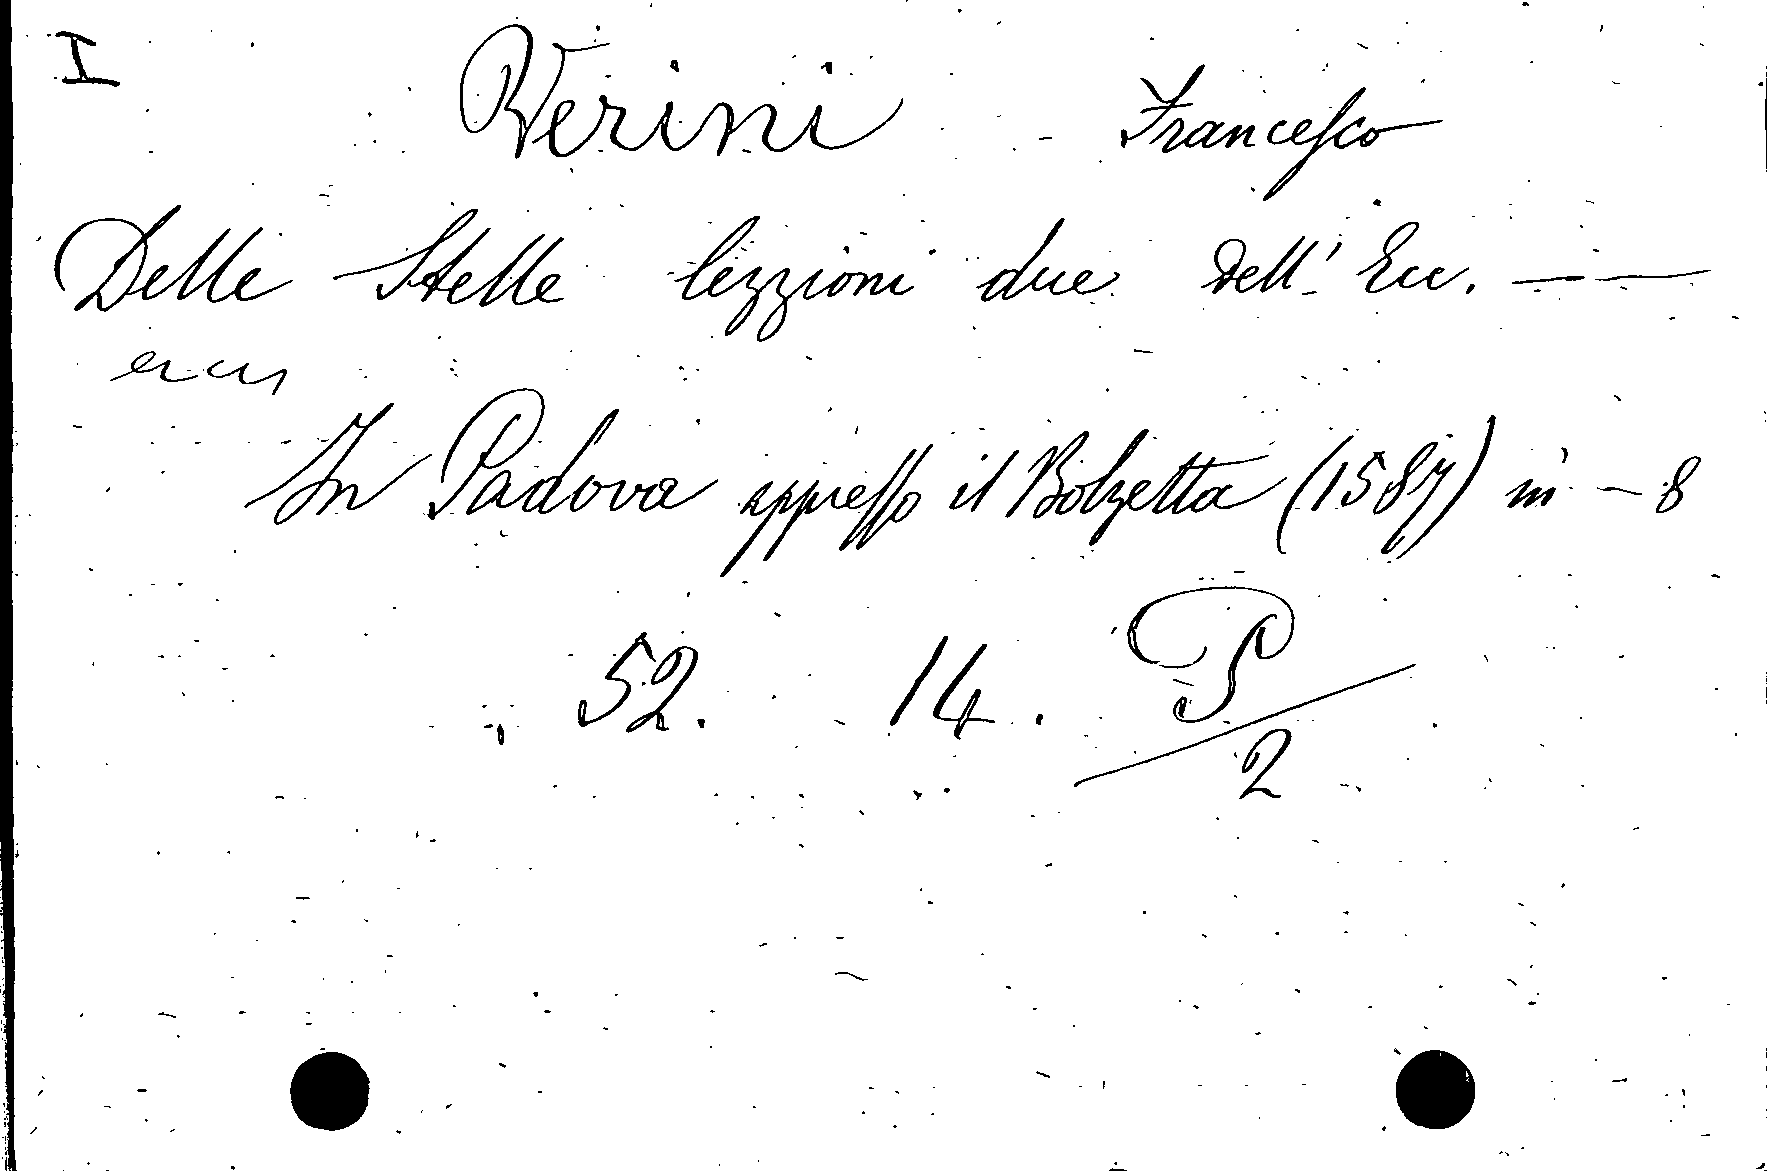 I
Verini Francesco
Delle Stelle lezzioni due dell' Ecc. — —
In Padova appresso il Bolzetta (1587) in - 8
52. 14. P/2